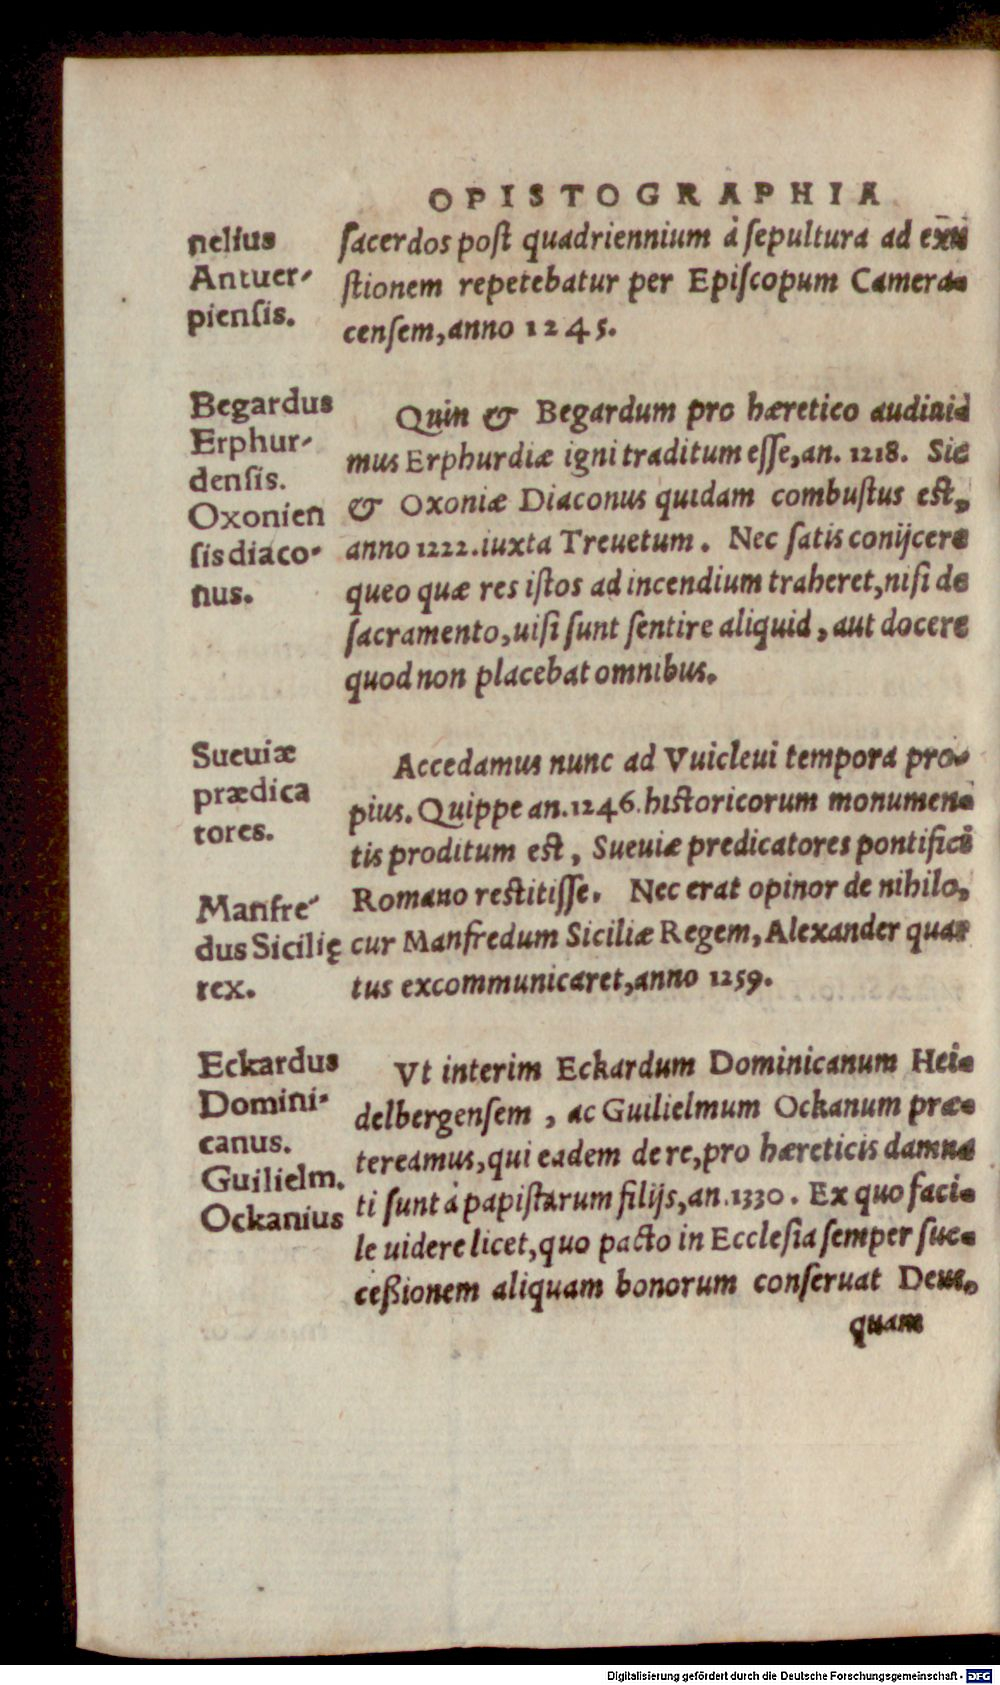 OPISTOGRAPHIA
nelius
Antuer-
piensis.
ſacerdos poſt quadriennium à ſepultura ad exū
ſtionem repetebatur per Epiſcopum Camera-
cenſem, anno 1245.
Begardus
Erphur-
densis.
Oxonien
ſis diaco-
nus.
Quin & Begardum pro hæretico audiui-
mus Erphurdiæ igni traditum eſſe, an. 1218. Sic
& Oxoniæ Diaconus quidam combuſtus eſt,
anno 1222. iuxta Treuetum. Nec ſatis conijcere
queo quæ res iſtos ad incendium traheret, niſi de
ſacramento, uiſi ſunt ſentire aliquid, aut docere
quod non placebat omnibus.
Sueuiæ
prædica
tores.
Manfre-
dus Sicilię
rex.
Accedamus nunc ad Vuicleui tempora pro-
pius. Quippe an. 1246. hiſtoricorum monumen-
tis proditum eſt, Sueuiæ predicatores pontifici
Romano reſtitiſſe. Nec erat opinor de nihilo,
cur Manfredum Siciliæ Regem, Alexander quar
tus excommunicaret, anno 1259.
Eckardus
Domini-
canus.
Guilielm.
Ockanius
Vt interim Eckardum Dominicanum Hei-
delbergenſem, ac Guilielmum Ockanum præ-
tereamus, qui eadem de re, pro hæreticis damna
ti ſunt à papiſtarum filijs, an. 1330. Ex quo faci-
le uidere licet, quo pacto in Eccleſia ſemper ſuc-
ceßionem aliquam bonorum conſeruat Deus,
quam
Digitalisierung gefördert durch die Deutsche Forschungsgemeinschaft - DFG